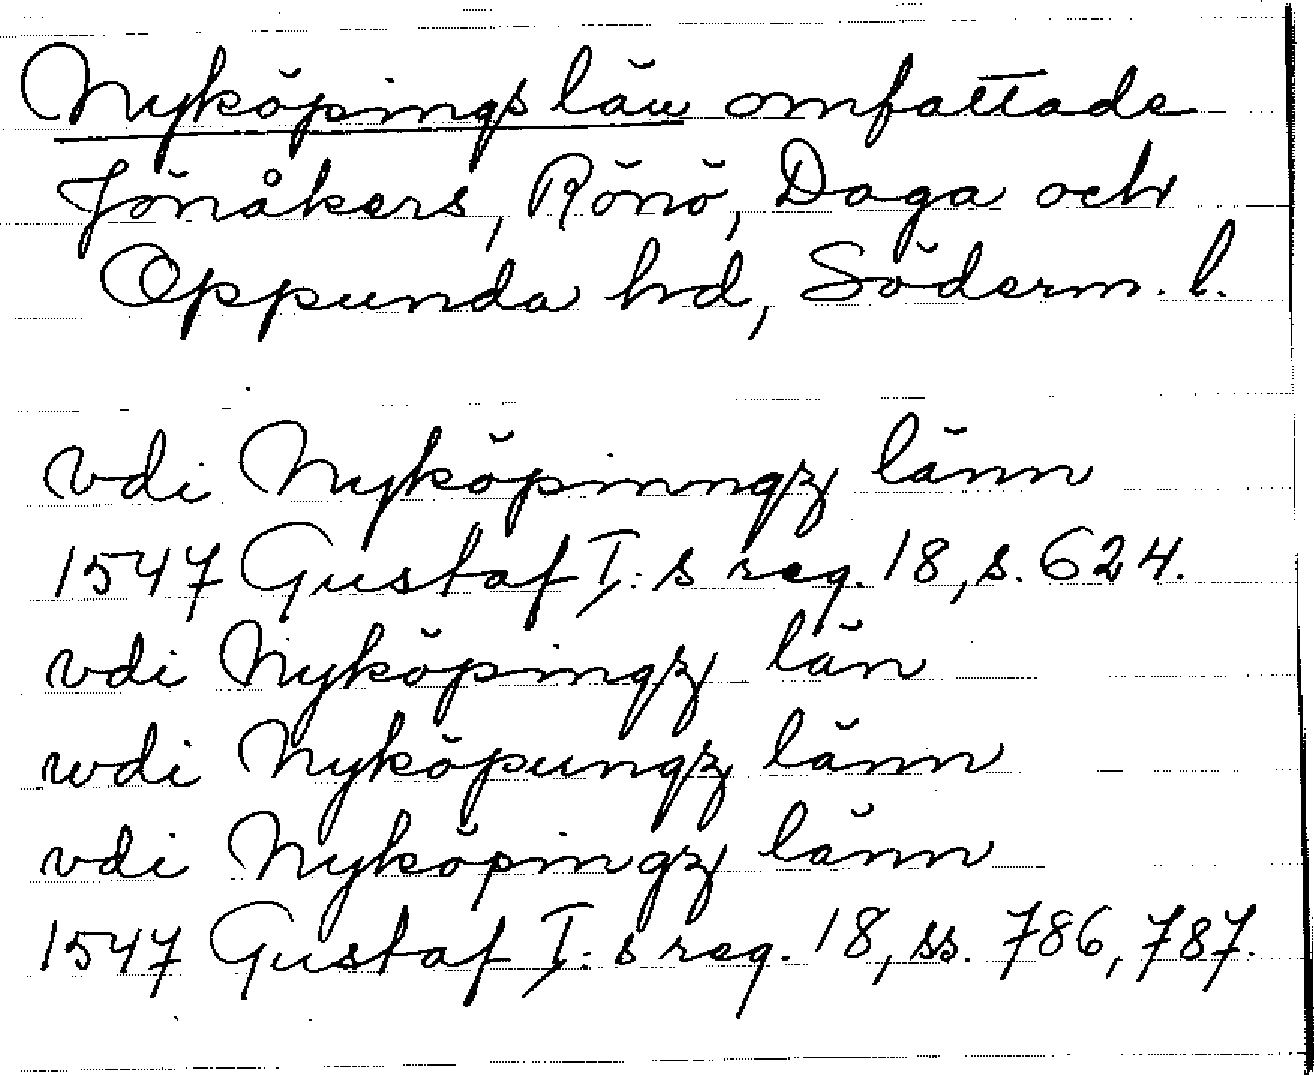 Nyköpings län omfattade
Jönåkers, Rönö, Daga och
Oppunda hd, Söderm. l.
vdi Nyköpinngz länn
1547 Gustaf I:s reg. 18, s. 624.
vdi Nyköpingz län
wdi Nyköpungz länn
vdi Nyköpingz länn
1547 Gustaf I:s reg. 18, ss. 786, 787.